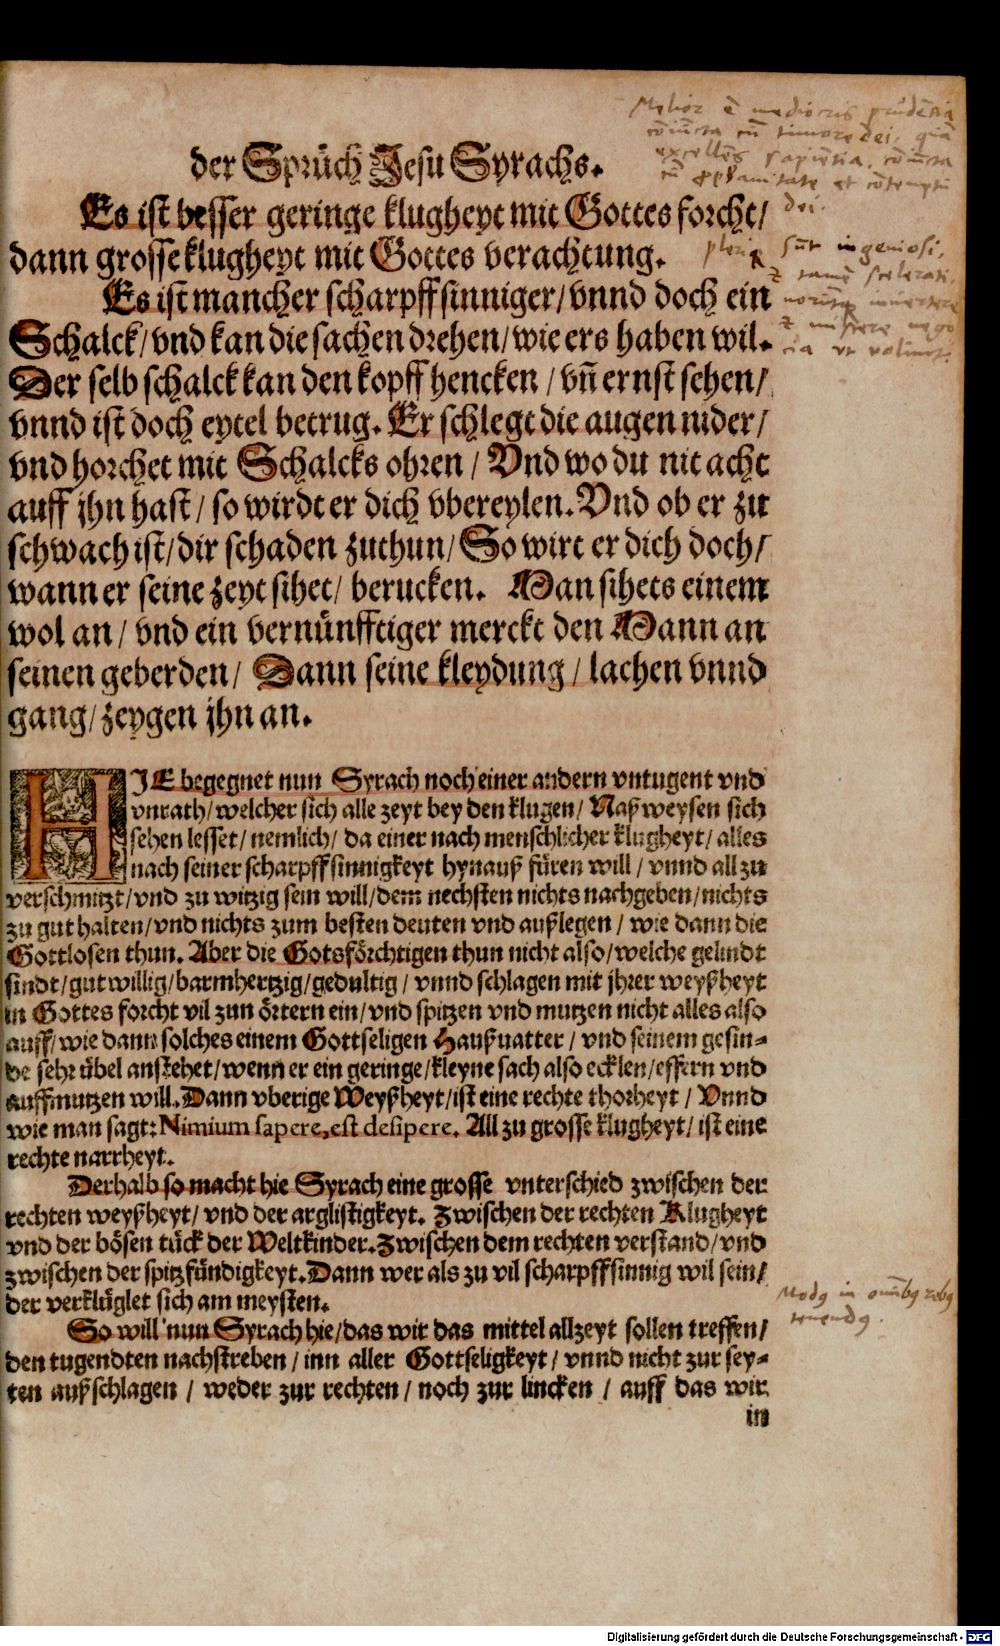 der Sprüch Jesu Syrachs.
Es ist besser geringe klugheyt mit Gottes forcht/
dann grosse klugheyt mit Gottes verachtung.
Es ist mancher scharpffsinniger/ vnnd doch ein
Schalck/ vnd kan die sachen drehen/ wie ers haben wil.
Der selb schalck kan den kopff hencken / vn̄ ernst sehen/
vnnd ist doch eytel betrug. Er schlegt die augen nider/
vnd horchet mit Schalcks ohren / Vnd wo du nit acht
auff jhn hast / so wirdt er dich vbereylen. Vnd ob er zu
schwach ist/ dir schaden zuthun/ So wirt er dich doch/
wann er seine zeyt sihet/ berucken. Man sihets einem
wol an / vnd ein vernünfftiger merckt den Mann an
seinen geberden/ Dann seine kleydung / lachen vnnd
gang/ zeygen jhn an.
HIE begegnet nun Syrach noch einer andern vntugent vnd
vnrath/ welcher sich alle zeyt bey den klugen/ Naßweysen sich
sehen lesset/ nemlich/ da einer nach menschlicher klugheyt/ alles
nach seiner scharpffsinnigkeyt hynauß füren will / vnnd all zu
verschmitzt/ vnd zu witzig sein will/ dem nechsten nichts nachgeben/ nichts
zu gut halten/ vnd nichts zum besten deuten vnd außlegen / wie dann die
Gottlosen thun. Aber die Gotsförchtigen thun nicht also/ welche gelindt
sindt/ gutwillig/ barmhertzig/ gedultig / vnnd schlagen mit jhrer weyßheyt
in Gottes forcht vil zun örtern ein/ vnd spitzen vnd mutzen nicht alles also
auff/ wie dann solches einem Gottseligen Haußuatter / vnd seinem gesin-
de sehr übel anstehet/ wenn er ein geringe/ kleyne sach also ecklen/ effern vnd
auffmutzen will. Dann vberige Weyßheyt/ ist eine rechte thorheyt / Vnnd
wie man sagt: Nimium sapere, est desipere. All zu grosse klugheyt/ ist eine
rechte narrheyt.
Derhalb so macht hie Syrach eine grosse vnterschied zwischen der
rechten weyßheyt/ vnd der arglistigkeyt. Zwischen der rechten Klugheyt
vnd der bösen tück der Weltkinder. Zwischen dem rechten verstand/ vnd
zwischen der spitzfündigkeyt. Dann wer als zu vil scharpffsinnig wil sein/
der verklüglet sich am meysten.
So will nun Syrach hie/ das wir das mittel allzeyt sollen treffen/
den tugendten nachstreben / inn aller Gottseligkeyt / vnnd nicht zur sey-
ten außschlagen / weder zur rechten / noch zur lincken / auff das wir
in
Melior ē mediocris prudētia
cōiūcta cū timore dei, quā
excellēs sapiētia, cōiūcta
cū ꝓphanitate et cōtemptu
dei.
sūt ingeniosi,
tamē scelerati,
Modꝰ in omībꝰ rebꝰ
tenendꝰ.
Digitalisierung gefördert durch die Deutsche Forschungsgemeinschaft - DFG